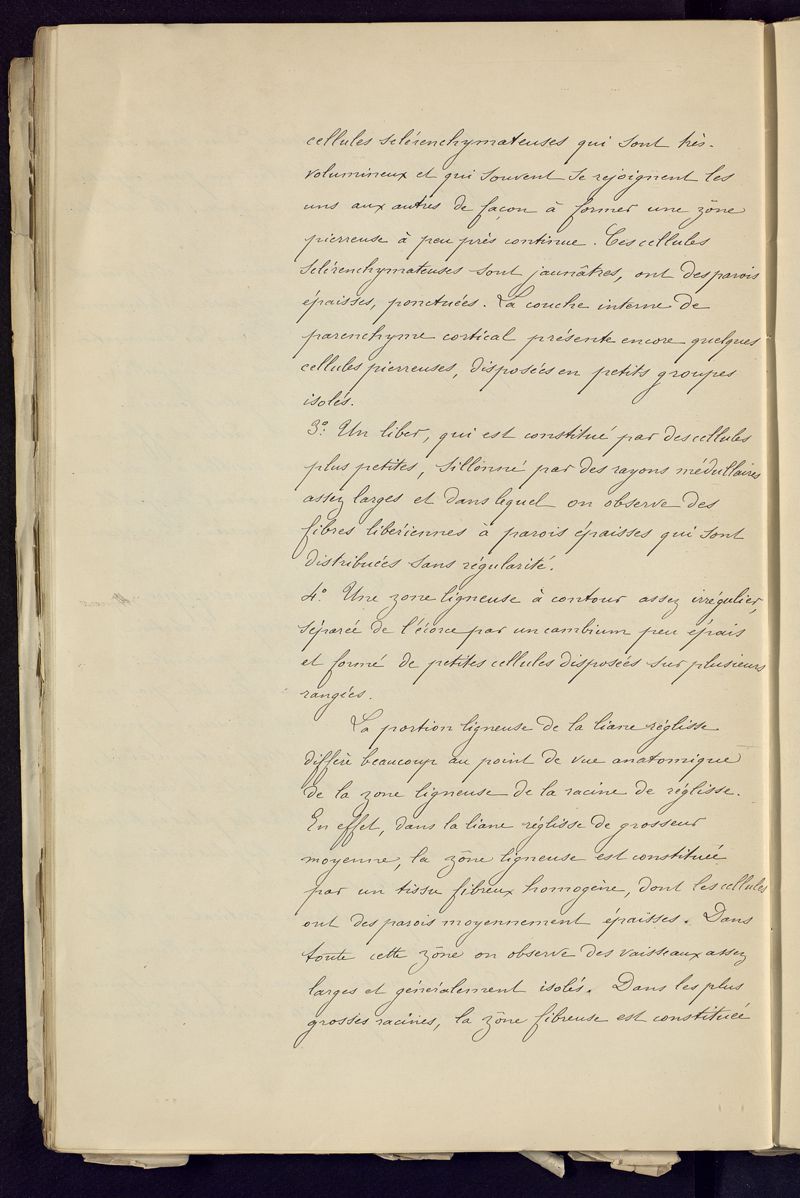 cellules sclérenchymateuses qui sont très-
volumineux et qui souvent se rejoignent les
uns aux autres de façon à former une zône
pierreuse à peu près continue. Ces cellules
sclérenchymateuses sont jaunâtres, ont des parois
épaisses, ponctuées. La couche interne de
parenchyme cortical présente encore quelques
cellules pierreuses, disposées en petits groupes
isolés.
3º. Un liber, qui est constitué par des cellules
plus petites, sillonné par des rayons médullaires
assez larges et dans lequel on observe des
fibres libériennes à parois épaisses qui sont
distribuées sans régularité.
4º. Une zone ligneuse à contour assez irrégulier,
séparée de l'écorce par un cambium peu épais
et formé de petites cellules disposées sur plusieurs
rangées.
La portion ligneuse de la liane réglisse
diffère beaucoup au point de vue anatomique
de la zone ligneuse de la racine de réglisse.
En effet, dans la liane réglisse de grosseur
moyenne, la zône ligneuse est constituée
par un tissu fibreux homogène, dont les cellules
ont des parois moyennement épaisses. Dans
toute cette zône on observe des vaisseaux assez
larges et généralement isolés. Dans les plus
grosses racines, la zône fibreuse est constituée